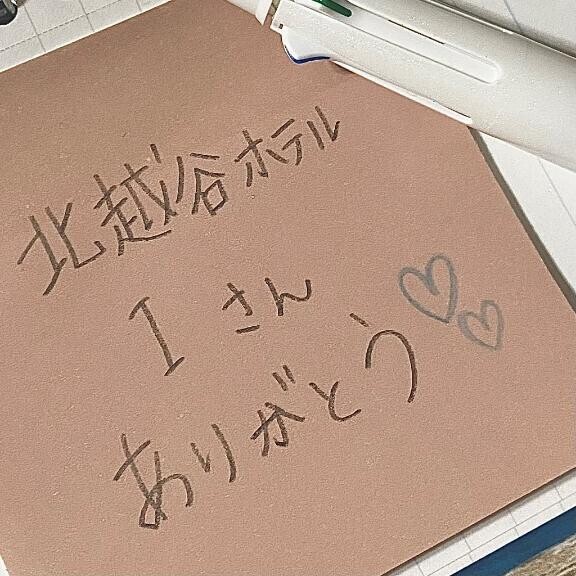 北越谷ホテル
Iさん
ありがとう♡♡